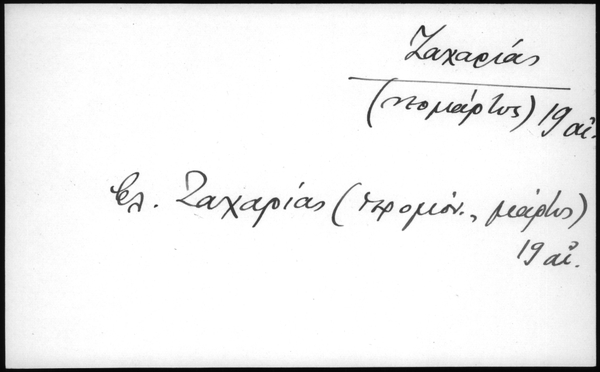 Ζαχαρίας
(νεομάρτυς) 19 αἰ.
βλ. Ζαχαρίας (ἱερομόν., μάρτυς)
19 αἰ.